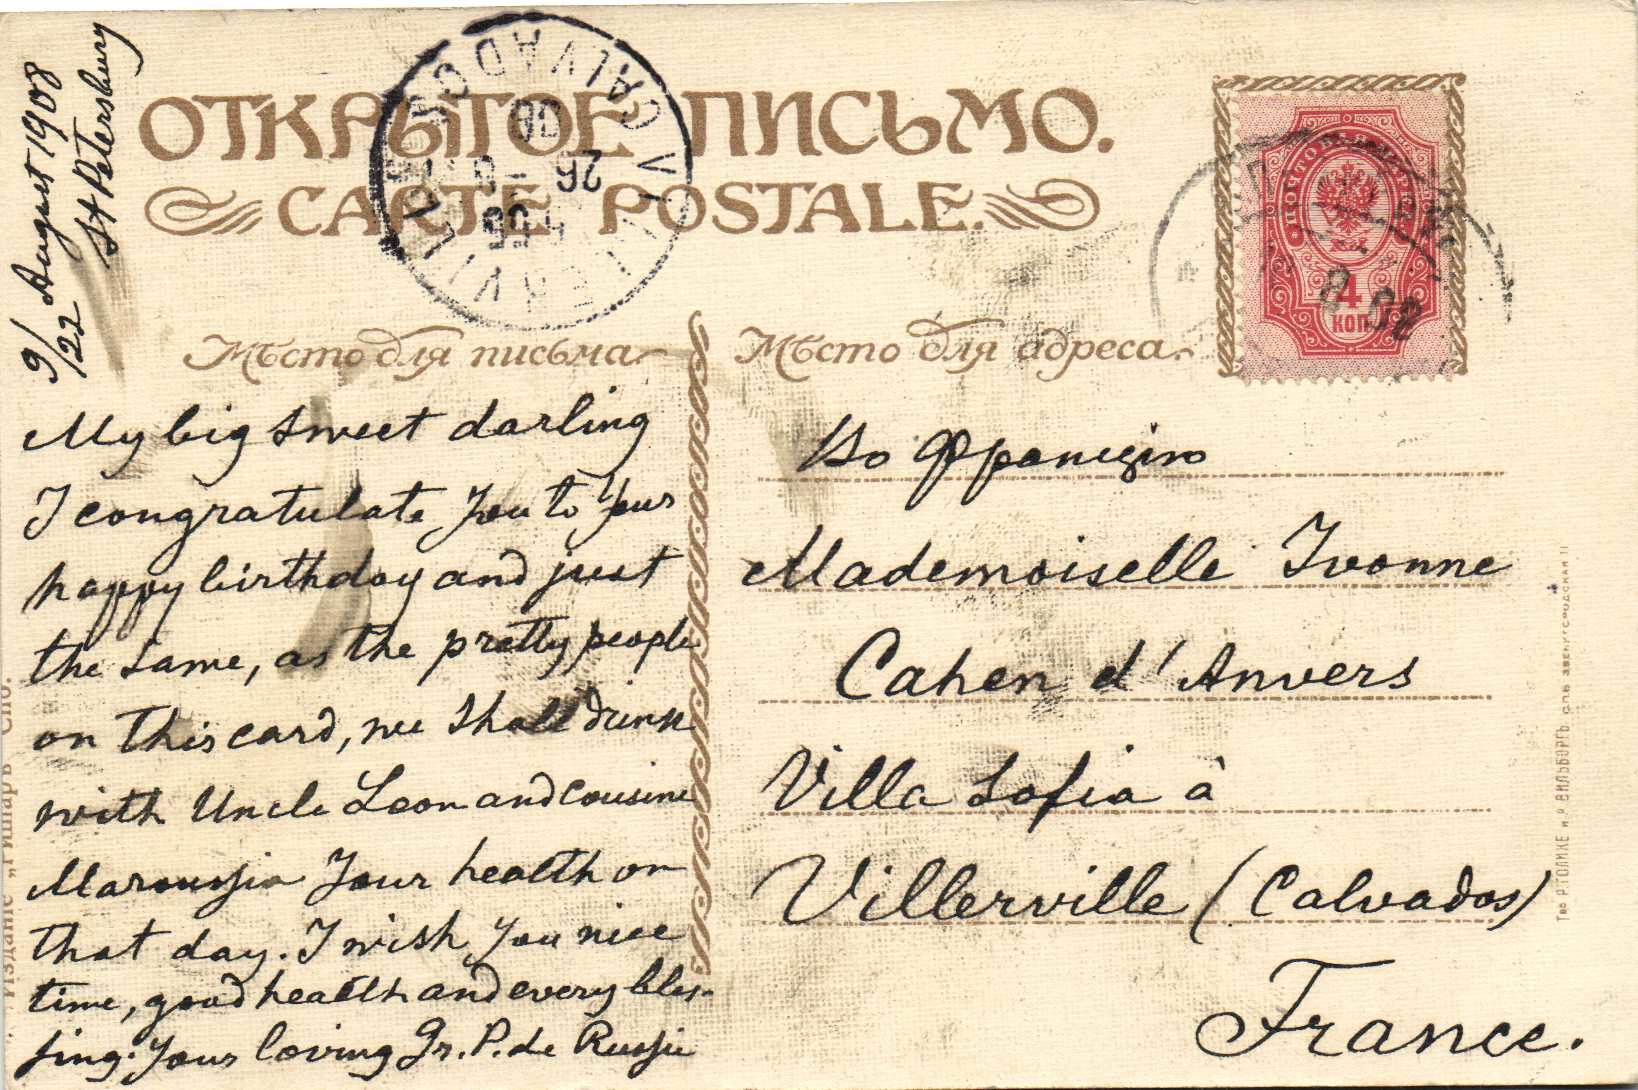 9/22 August 1908
St Petersbury
ОТКРЫТОЕ ПИСЬМО.
CARTE POSTALE.
VILLERVILLE
CALVADOS
26 - 8
08
Мѣсто для письма.
Мѣсто для адреса.
4
КОП
8 08
My big sweet darling
I congratulate You to Your
happy birthday and just
the same, as the pretty people
on this card, we shall drink
with Uncle Leon and cousine
Maroussia Your health on
that day. I wish You nice
time, good health and every bles-
sing. Your loving Gr. P. de Russie
Во Францію
Mademoiselle Yvonne
Cahen d'Anvers
Villa Sofia à
Villerville (Calvados)
France.
Изданіе „Ришаръ“ Спб.
Тво Р. ГОЛИКЕ и А. ВИЛЬБОРГЪ. СПБ. ЗВЕНИГОРОДСКАЯ 11